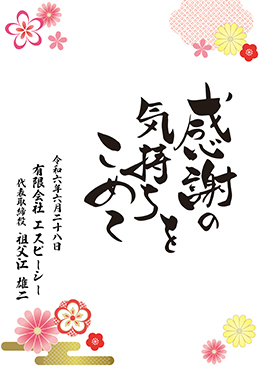 感謝の
気持ちを
こめて
令和六年六月二十八日
有限会社 エスピーシー
代表取締役 祖父江 雄二